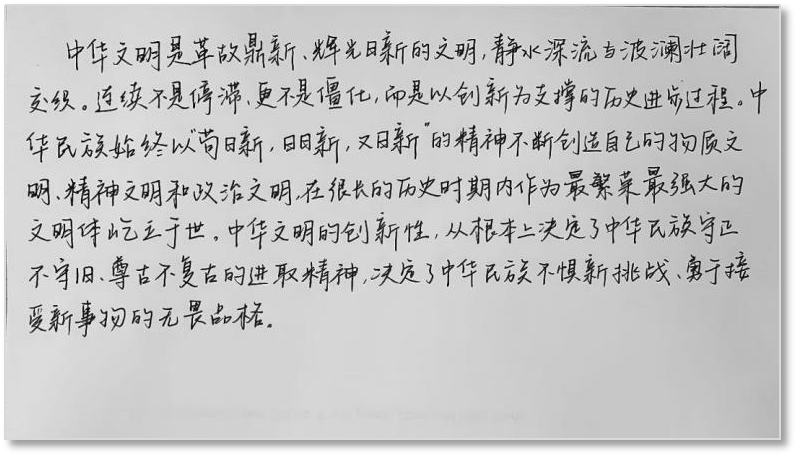 中华文明是革故鼎新、辉光日新的文明,静水深流与波澜壮阔
交织。连续不是停滞、更不是僵化,而是以创新为支撑的历史进步过程。中
华民族始终以“苟日新,日日新,又日新”的精神不断创造自己的物质文
明、精神文明和政治文明,在很长的历史时期内作为最繁荣最强大的
文明体屹立于世。中华文明的创新性,从根本上决定了中华民族守正
不守旧、尊古不复古的进取精神,决定了中华民族不惧新挑战、勇于接
受新事物的无畏品格。